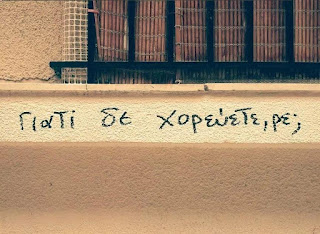 Γιατί δε χορεύετε,ρε;